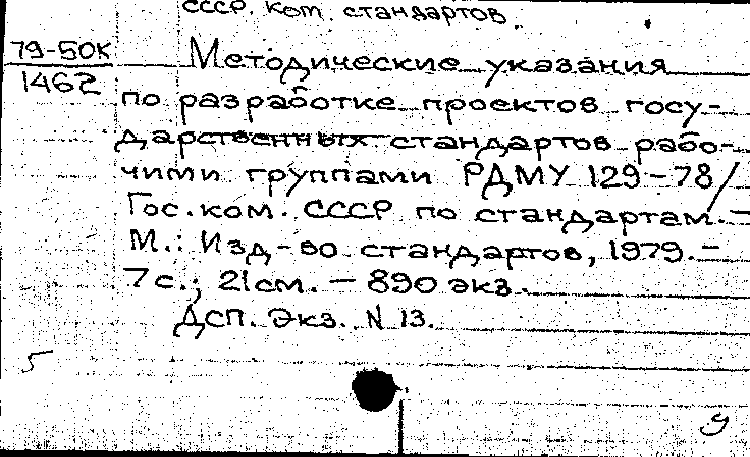 СССР. Ком. стандартов.
79-50К
1462
Методические указания
по разработке проектов госу-
дарственных стандартов рабо-
чими группами РДМУ 129-78/
Гос. ком. СССР по стандартам. -
М.: Изд-во стандартов, 1979. -
7с.; 21см. - 890 экз.
Дсп. Экз. N 13.
5
9